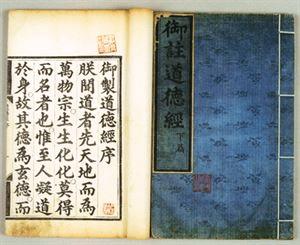 御製道德經序
朕聞道者先天地而爲
萬物宗生生化化莫得
而名者也惟至人凝道
於身故其德爲玄德而
御註道德經下篇